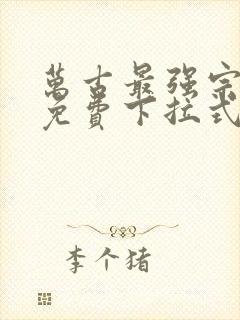 萬古最强宗
免費下拉式
李个猪